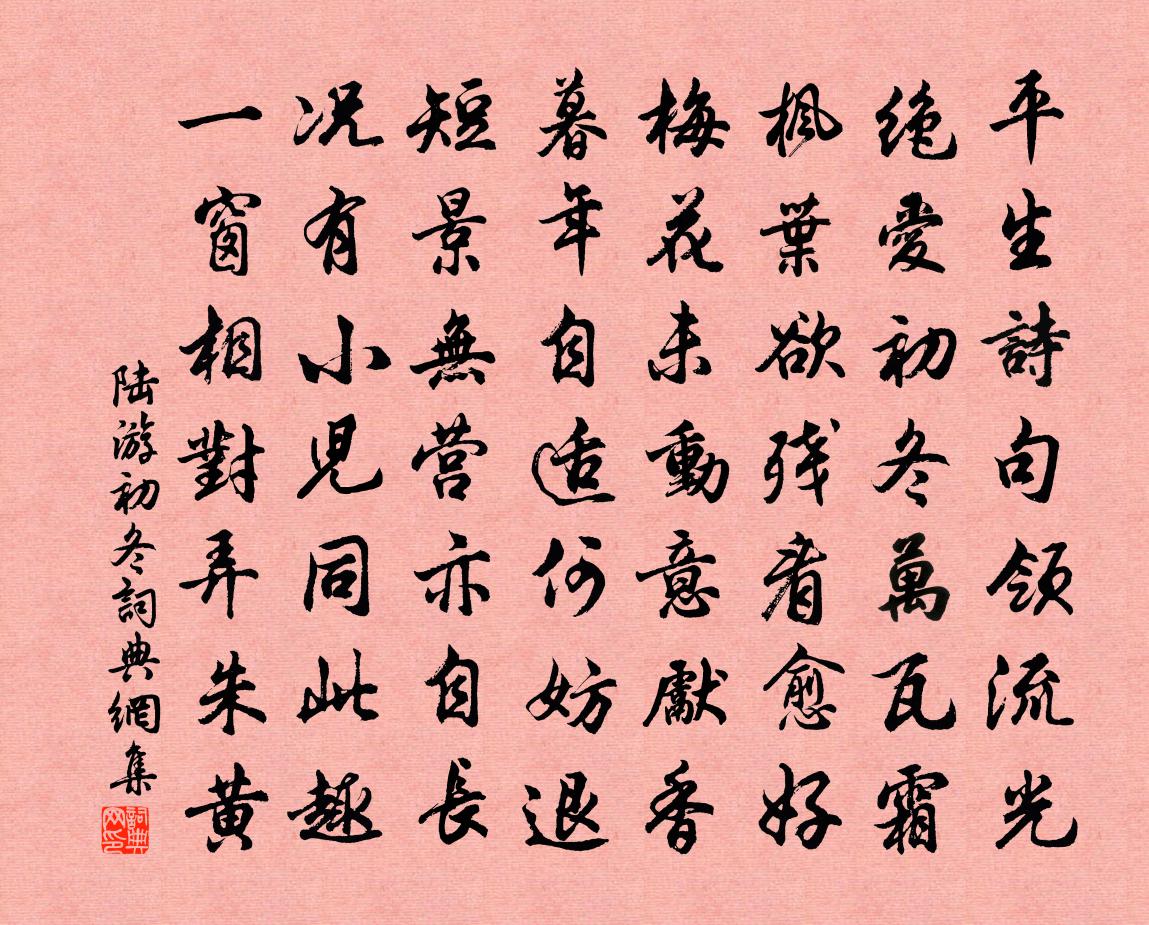 平生詩句領流光
绝愛初冬萬瓦霜
楓葉欲残看愈好
梅花未動意獻香
暮年自适何妨退
短景無营亦自長
况有小児同此趣
一窗相對弄朱黄
陆游初冬詞典網集
詞典网印